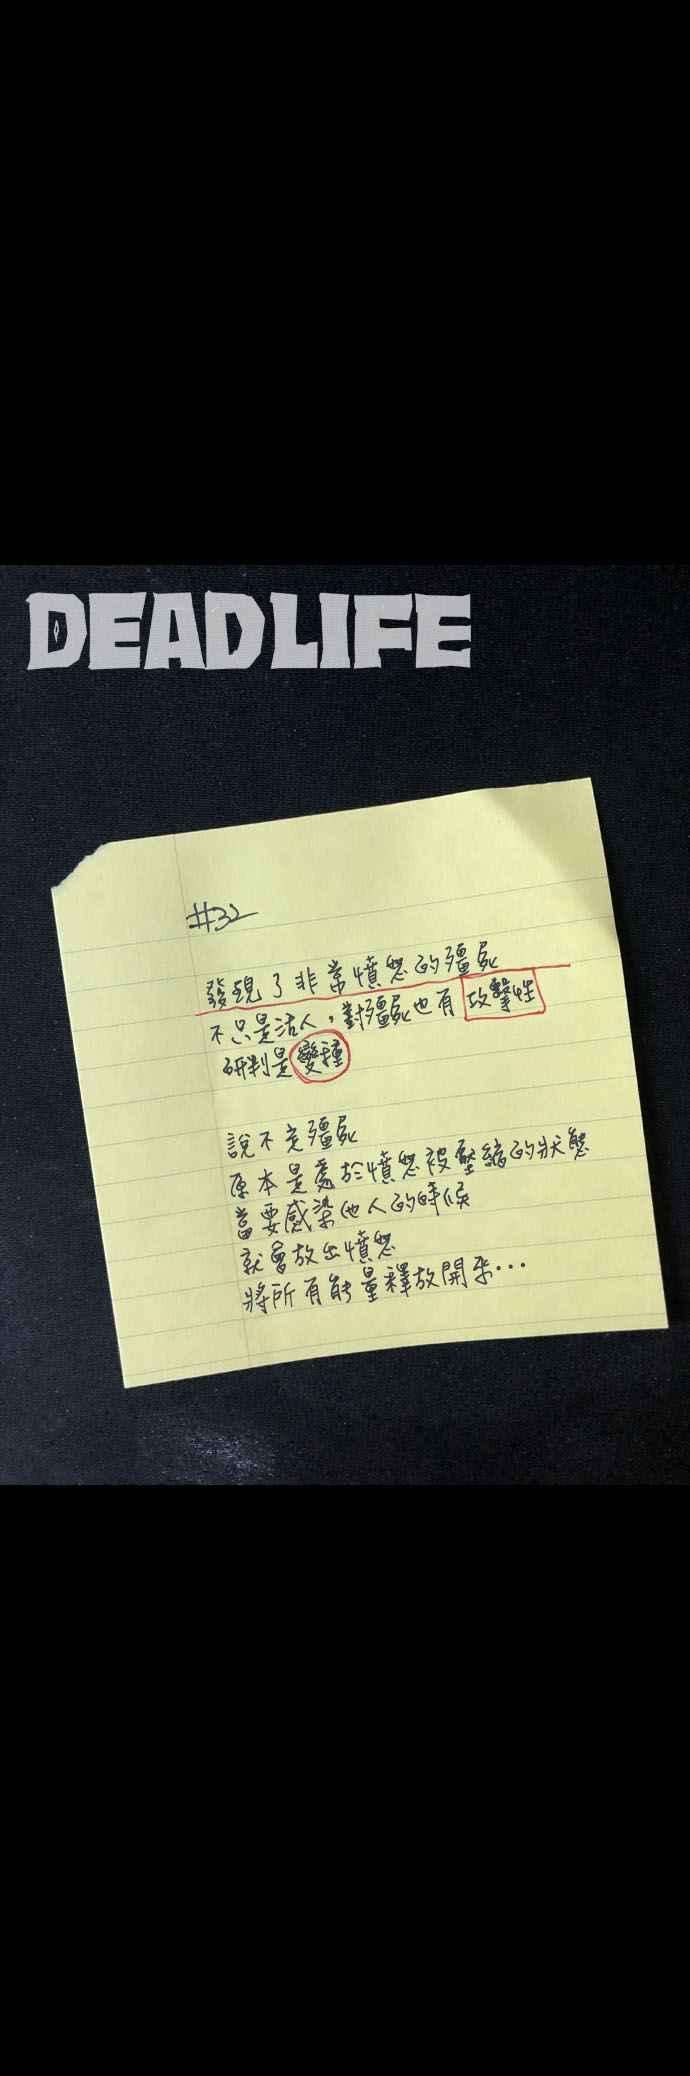 DEADLIFE
#32
發現了非常憤怒的殭屍
不只是活人，對殭屍也有攻擊性
研判是變種
說不定殭屍
原本是處於憤怒被壓縮的狀態
當要感染他人的時候
就會放出憤怒
將所有能量釋放開來…